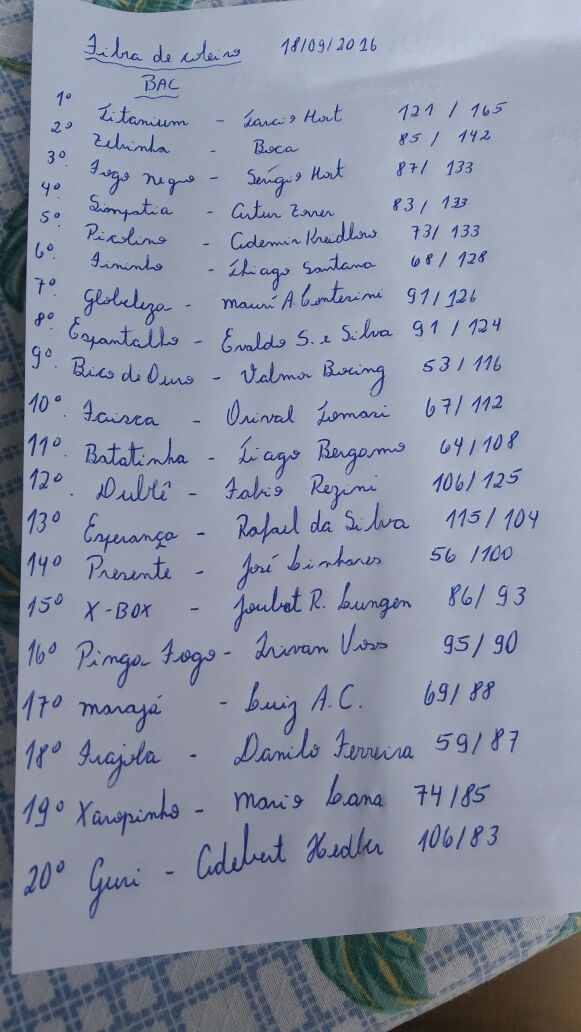 Fibra de coleiro 18/09/2016
BAC
1º Titanium - Tarcis Hort 121 / 165
2º Zebrinha - Boca 85 / 142
3º Fogo negro - Sérgio Hort 87 / 133
4º Simpatia - Artur Zorer 83 / 133
5º Picolino - Ademir Kreidlow 73 / 133
6º Fininho - Thiago Santana 68 / 128
7º Globeleza - Mauri A. Conterini 91 / 126
8º Espantalho - Evaldo S. e Silva 91 / 124
9º Bico de Ouro - Valmor Boeing 53 / 116
10º Faisca - Orival Lomari 67 / 112
11º Batatinha - Tiago Bergamo 64 / 108
12º Dublê - Fabio Rezini 106 / 125
13º Esperança - Rafael da Silva 115 / 104
14º Presente - José Linhares 56 / 100
15º X-BOX - R. Lungen 86 / 93
16º Pinga Fogo - Irivan Voss 95 / 90
17º Marajá - Luiz A.C. 69 / 88
18º Frajola - Danilo Ferreira 59 / 87
19º Xaropinho - Mario Lana 74 / 85
20º Guri - Adebert Hedler 106 / 83